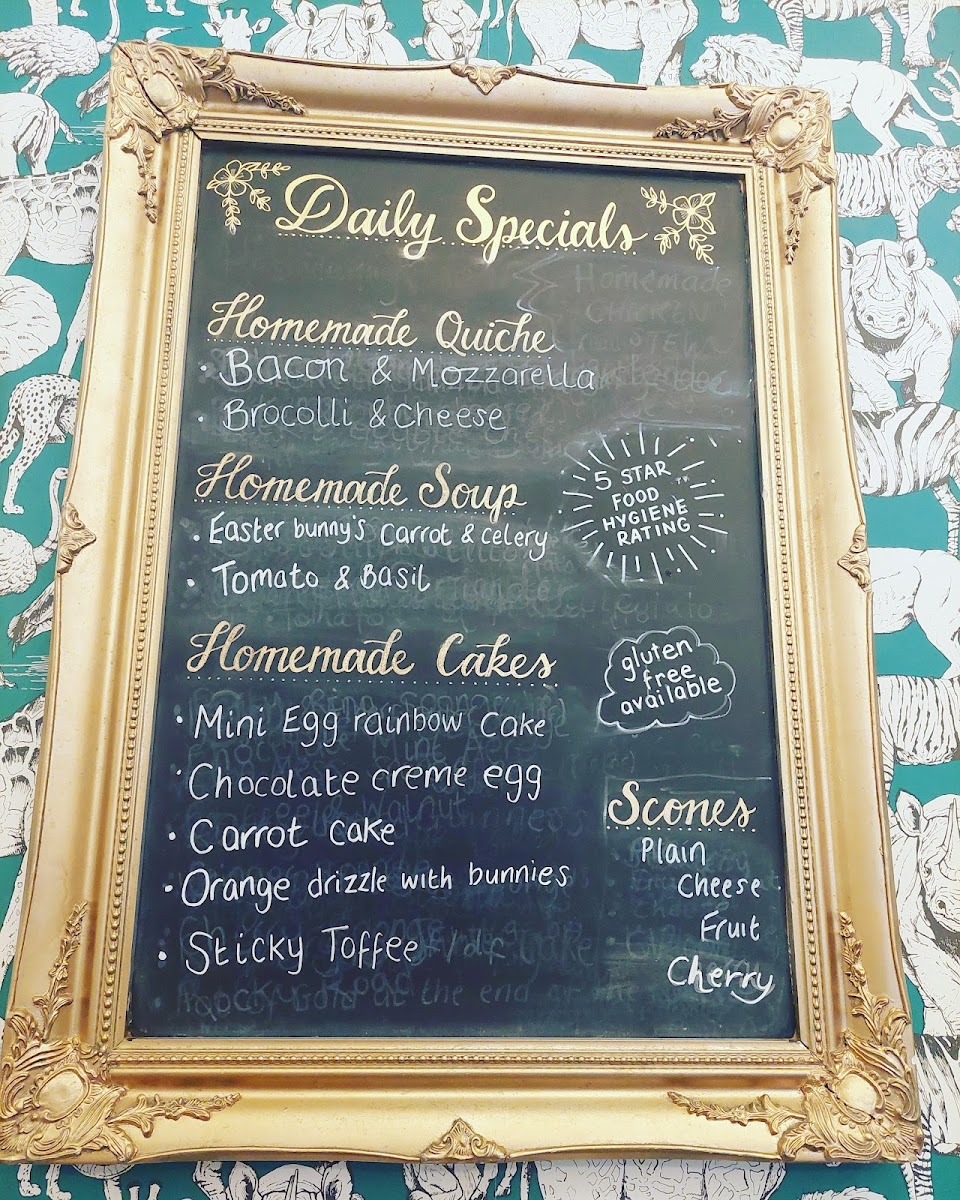 Daily Specials
Homemade Quiche
• Bacon & Mozzarella
• Brocolli & Cheese
Homemade Soup
• Easter bunny's Carrot & celery
• Tomato & Basil
5 STAR
FOOD
HYGIENE
RATING
Homemade Cakes
• Mini Egg rainbow Cake
• Chocolate creme egg
• Carrot Cake
• Orange drizzle with bunnies
• Sticky Toffee
gluten
free
available
Scones
Plain
Cheese
Fruit
Cherry